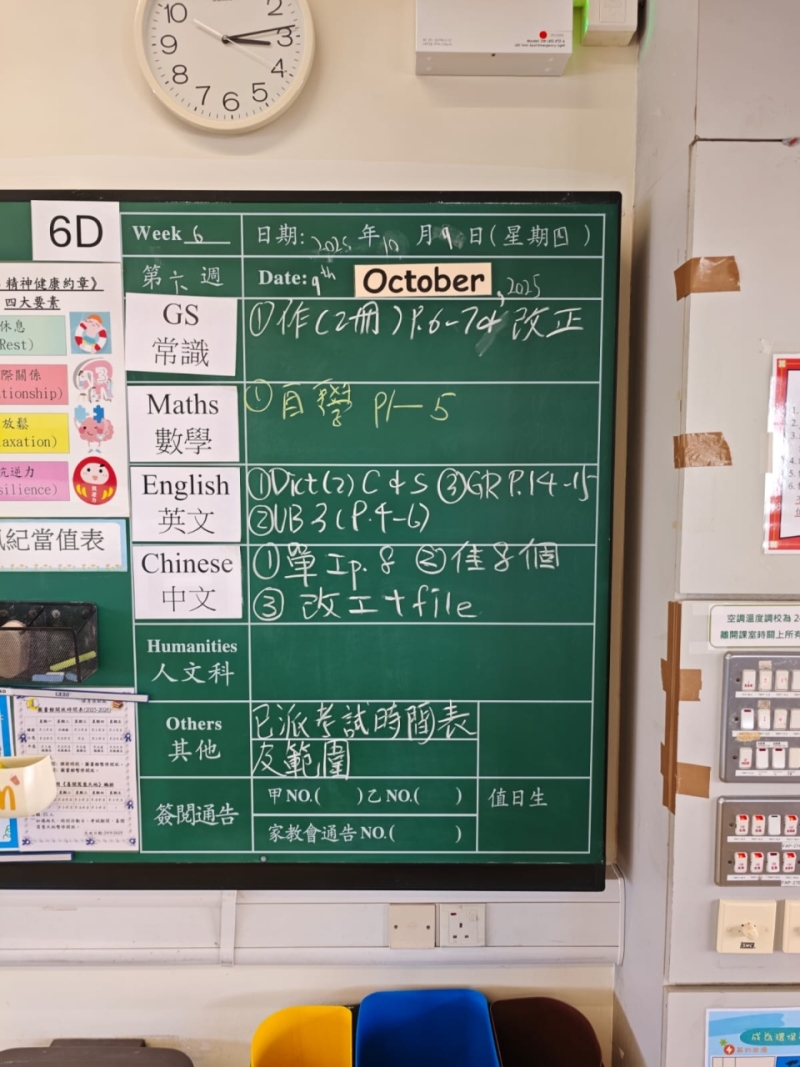 10 2
9 3
8 4
7 6 5
6D
Week 6
日期: 2025 年 10 月 9 日(星期四)
第六週
Date: 9th October, 2025
精神健康約章》
四大要素
休息
Rest)
際關係
tionship)
放鬆
axation)
抗逆力
silience)
風紀當值表
GS
常識
①作(2冊)P.6-7& 改正
Maths
數學
①自學 P1-5
English
英文
①Dict(2) C & S ③GR P.14-15
②UB 3 (P.4-6)
Chinese
中文
①單工p.8 ②佳8個
③ 改工+file
Humanities
人文科
Others
其他
已派考試時間表
及範圍
簽閱通告
甲NO.( )乙NO.( )
家教會通告NO.( )
值日生
空調溫度調校為 2
離開課室時關上所有
成為環保